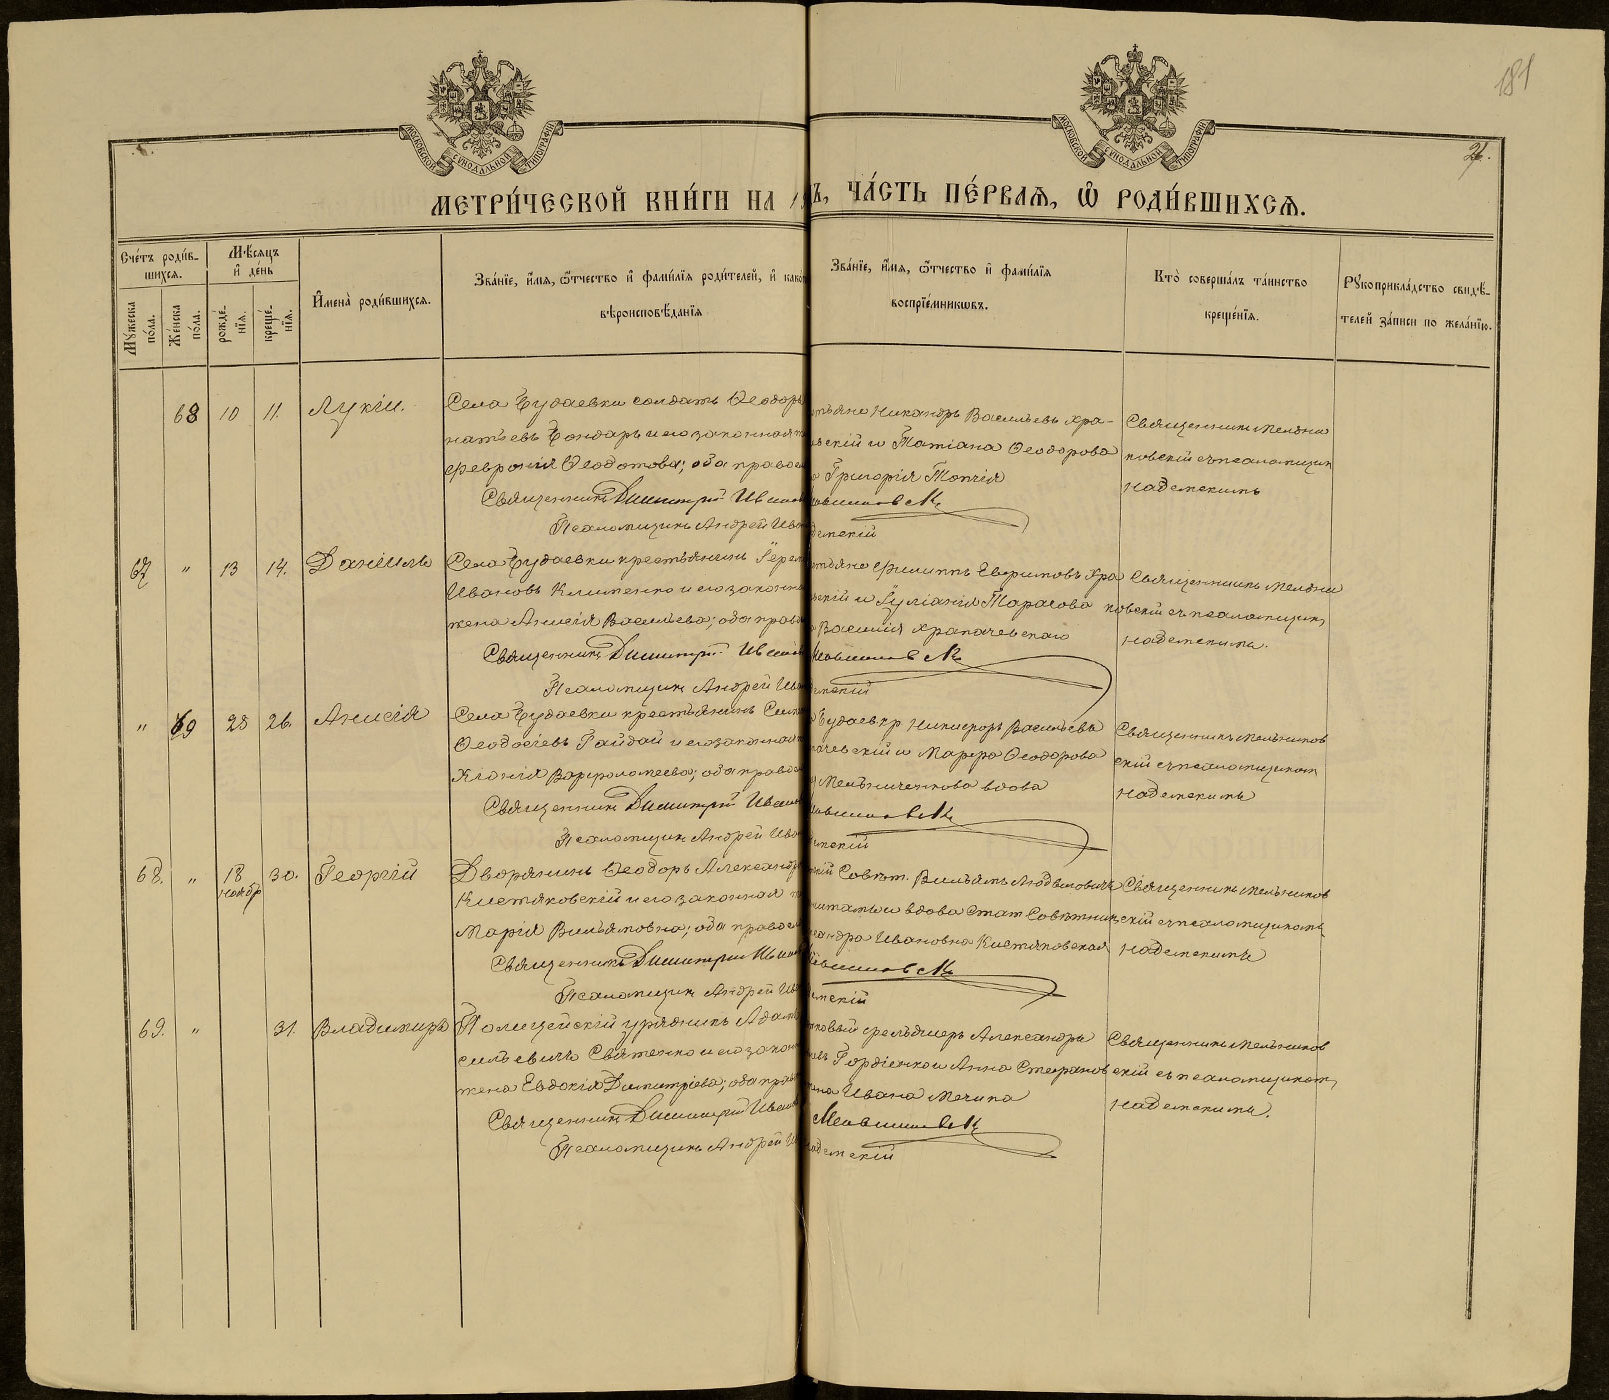 181
26.
МОСКОВСКОЙ СѴНОДАЛЬНОЙ ТИПОГРАФІИ
МОСКОВСКОЙ СѴНОДАЛЬНОЙ ТИПОГРАФІИ
МЕТРИ́ЧЕСКОЙ КНИ́ГИ НА
Ъ, ЧА́СТЬ ПЕ́РВАѦ, Ѡ҆ РОДИ́ВШИХСѦ.
Сче́тъ роди́в-
шихся.
Мѣ́сяцъ
и҆ де́нь
Мꙋ́жеска по́ла.
Же́нска по́ла.
рожде́-
нїѧ.
креще́-
нїѧ.
И҆мена̀ роди́вшихся.
Зва́нїе, и҆́мѧ, ѻ҆́тчество и҆ фами́лїѧ роди́телей, и҆ како
вѣроисповѣ́данїѧ
Зва́нїе, и҆́мѧ, ѻ҆́тчество и҆ фами́лїѧ
воспрїе́мникѡвъ.
Кто̀ соверша́лъ та́инство
креще́нїѧ.
Рꙋкоприкла́дство свидѣ́-
телей за́писи по жела́нїю.
68 10 11. Лукіи.
Села Будаевки солдатъ Ѳеодоръ
натьевъ Бондарь и его законная
Феврónія Ѳеодотова; оба правосл
Священникъ Димитрій
Псаломщикъ Андрей Ива
тьянъ Никаноръ Васильевъ Хра-
вскій и Татіана Ѳеодорова
Григорія Топчія
демскій
Священникъ Мельни
ковскій съ псаломщик
Надемскимъ
67 " 13 14. Даніилъ
Села Будаевки крестьянинъ
Ивановъ Клименко и его законна
жена Анисія Васильева; оба право
Священникъ Димитрій
Псаломщикъ Андрей Ива
стьянъ Филиппъ Евфимовъ Хра
вскій и Іуліанія Тарасова
Василія Храпачевскаго
демскій
Священникъ Мельни
ковскій съ псаломщик
Надемскимъ.
" 69 25 26. Анисія
Села Будаевки крестьянинъ
Ѳеодосіевъ Гайдай и его законная
Хіонія Варфоломеева; оба правосл
Священникъ Димитрій
Псаломщикъ Андрей Ива
Будаев кр Никифоръ Васильевъ
пачевскій и Марфа Ѳеодорова
Мельниченкова вдова
демскій
Священникъ Мельников
скій съ псаломщикомъ
Надемскимъ
68. " 18 30. Георгій
ноябр
Дворянинъ Ѳеодоръ Александр
Кистяковскій и его законная
Марія Вильямовна; оба правосл
Священникъ Димитрій
Псаломщикъ Андрей Ива
скій Совѣт. Вильямъ Людвиговичъ
и вдова Стат Совѣтника
сандра Ивановна Кистяковская
демскій
Священникъ Мельников
скій съ псаломщикомъ
Надемскимъ
69. " 31. Владимиръ
Полицейскій урядникъ Адам
сильевичъ Святенко и его закон
жена Евдокія Димитріева; оба прав
Священникъ Димитрій
Псаломщикъ Андрей
фельдшеръ Александръ
Гордіенко и Анна Стефанов
Ивана
демскій
Священникъ Мельников
скій съ псаломщикомъ
Надемскимъ.